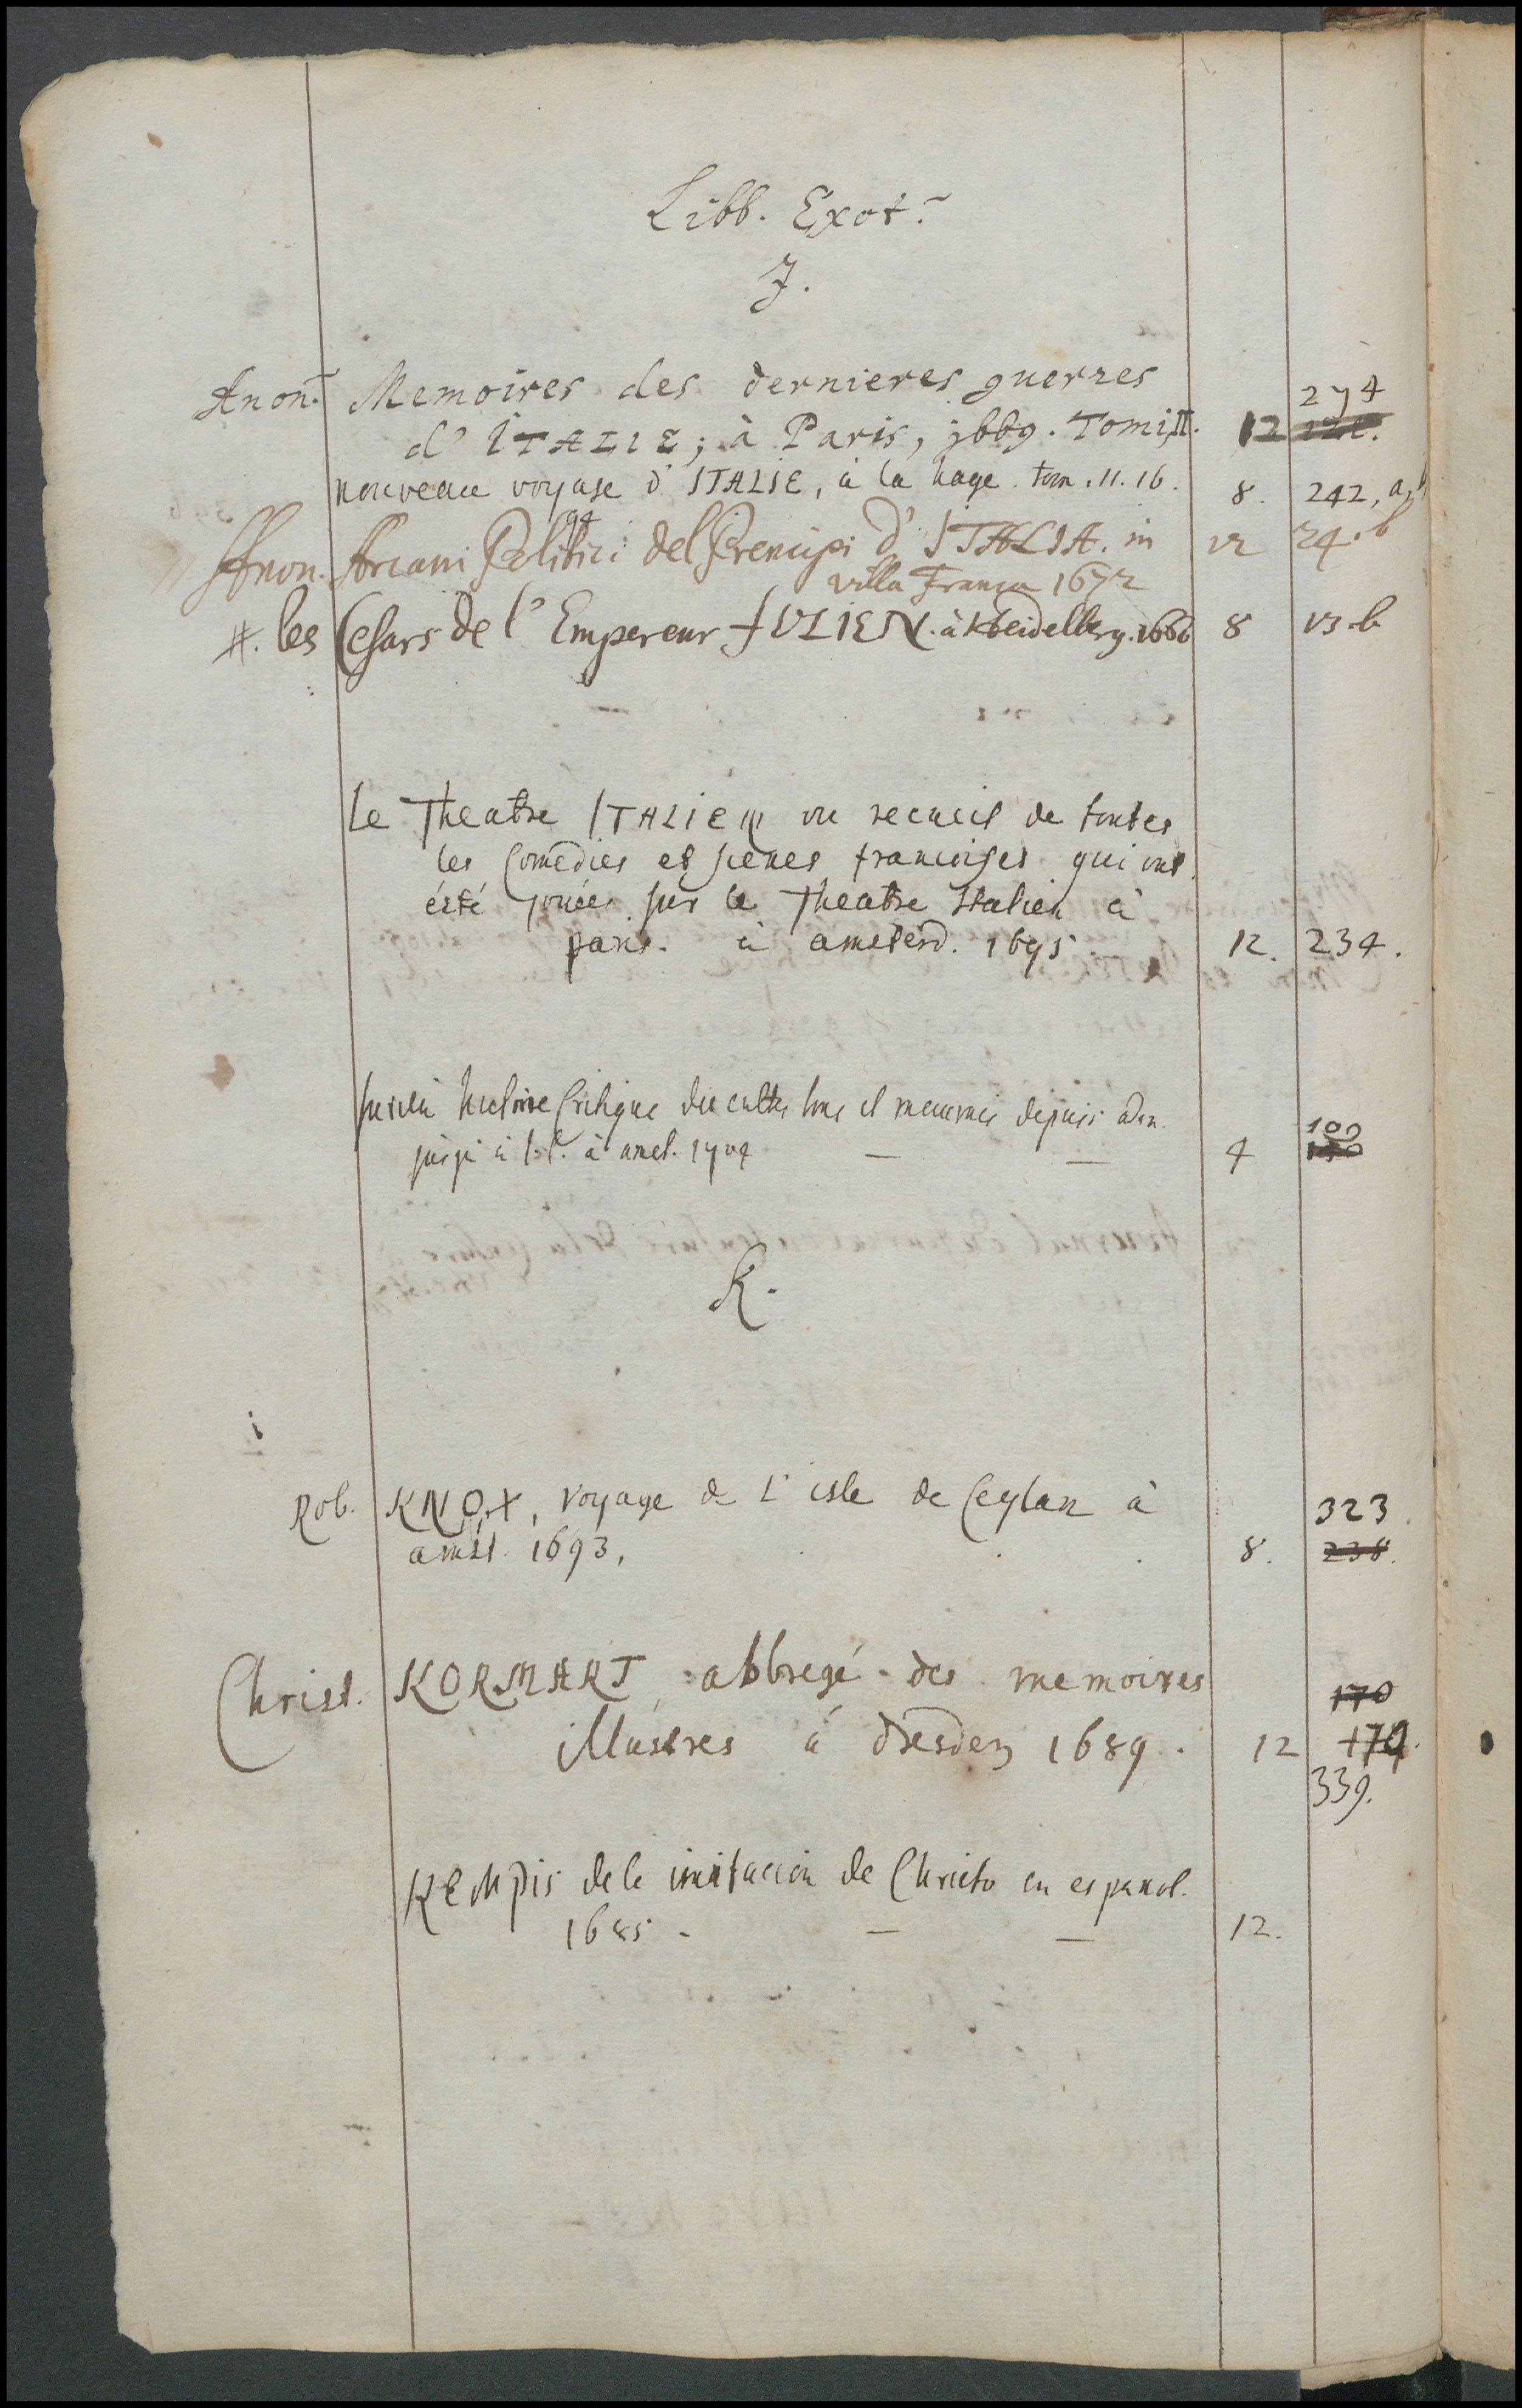 Libb. Exot.
J.
Anon. Memoires des dernieres guerres 274
d'ITALIE; à Paris, 1669. Tomi II. 12
nouveau voyage d'ITALIE, à la haye. tom. 11. 16. 8. 242, a,b
Anon. Arcani Politici del Prencipi d'ITALIA. in 12 24.b
villa Franca 1672
#. les Cesars de l'Empereur JULIEN. à Heidelberg. 1660 8 13.b
Le Theatre ITALIEN ou recueil de toutes
les Comedies et scenes francoises qui ont
été jouées sur le Theatre Italien à
paris. à amsterd. 1695. 12. 234.
Jurieu histoire Critique des cultes bons et mauvais depuis Adam 100
jusqu'à J.C. à amst. 1704 — — 4 150
K.
Rob. KNOX, voyage de L'isle de Ceylan à 323.
amst. 1693, 8. 238.
Christ. KORMART, abbregé des memoires 170
illustres à dresden 1689. 12 179.
339.
KEMPis de la imitacion de Christo en espanol.
1685. — — 12.